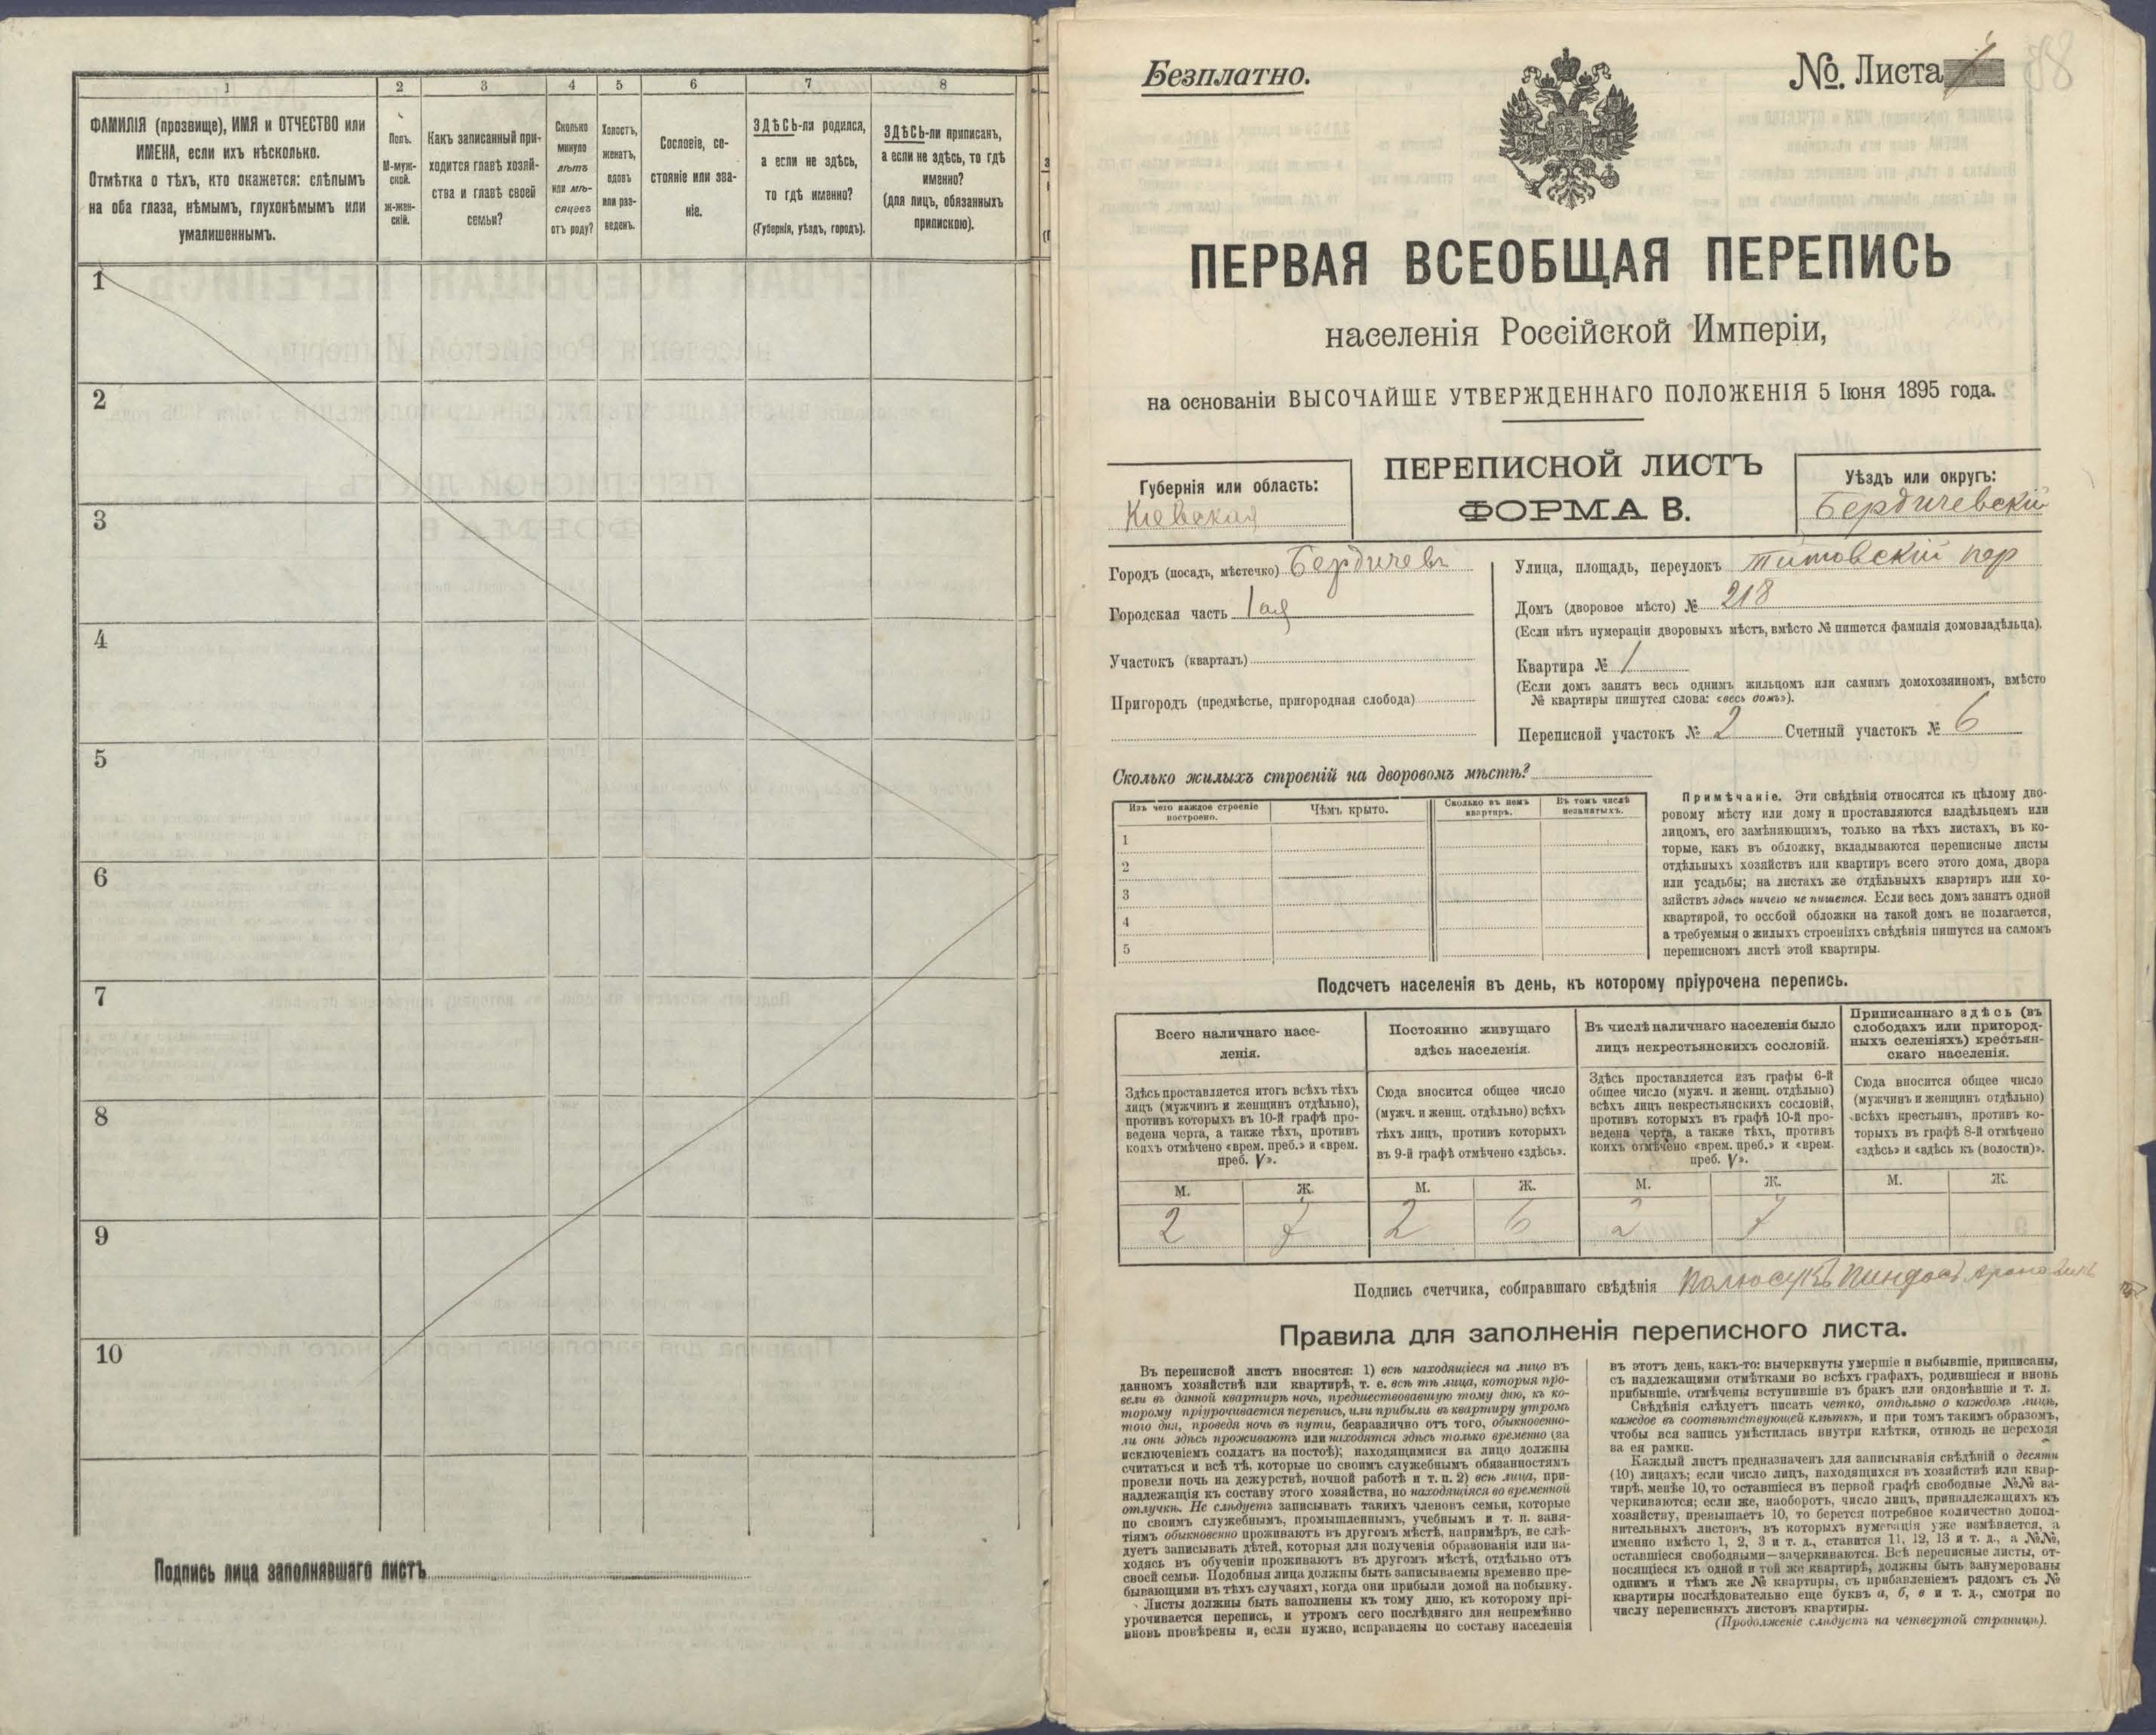 1
2
3
4
5
6
7
8
ФАМИЛІЯ (прозвище), ИМЯ и ОТЧЕСТВО или
ИМЕНА, если ихъ нѣсколько.
Отмѣтка о тѣхъ, кто окажется: слѣпымъ
на оба глаза, нѣмымъ, глухонѣмымъ или
умалишеннымъ.
Полъ.
М-муж-
ской.
Ж-жен-
скій.
Какъ записанный при-
ходится главѣ хозяй-
ства и главѣ своей
семьи?
Сколько
минуло
лѣтъ
или мѣ-
сяцевъ
отъ роду?
Холостъ,
женатъ,
вдовъ
или раз-
веденъ.
Сословіе, со-
стояніе или зва-
ніе.
ЗДѢСЬ-ли родился,
а если не здѣсь,
то гдѣ именно?
(Губернія, уѣздъ, городъ).
ЗДѢСЬ-ли приписанъ,
а если не здѣсь, то гдѣ
именно?
(для лицъ, обязанныхъ
припискою).
1
2
3
4
5
6
7
8
9
10
Подпись лица заполнявшаго листъ
Безплатно.
№. Листа
ПЕРВАЯ ВСЕОБЩАЯ ПЕРЕПИСЬ
населенія Россійской Имперіи,
на основаніи ВЫСОЧАЙШЕ УТВЕРЖДЕННАГО ПОЛОЖЕНІЯ 5 Іюня 1895 года.
Губернія или область:
Кіевская
ПЕРЕПИСНОЙ ЛИСТЪ
ФОРМА В.
Уѣздъ или округъ:
Бердичевскій
Городъ (посадъ, мѣстечко) Бердичевъ
Городская часть 1ая
Участокъ (кварталъ)
Пригородъ (предмѣстье, пригородная слобода)
Улица, площадь, переулокъ Титовскій пер
Домъ (дворовое мѣсто) № 218
(Если нѣтъ нумераціи дворовыхъ мѣстъ, вмѣсто № пишется фамилія домовладѣльца).
Квартира № 1
(Если домъ занятъ весь однимъ жильцомъ или самимъ домохозяиномъ, вмѣсто
№ квартиры пишутся слова: «весь домъ»).
Переписной участокъ № 2 Счетный участокъ № 6
Сколько жилыхъ строеній на дворовомъ мѣстѣ?
Изъ чего каждое строеніе
построено.
Чѣмъ крыто.
Сколько въ немъ
квартиръ.
Въ томъ числѣ
незанятыхъ.
1
2
3
4
5
Примѣчаніе. Эти свѣдѣнія относятся къ цѣлому дво-
ровому мѣсту или дому и проставляются владѣльцемъ или
лицомъ, его замѣняющимъ, только на тѣхъ листахъ, въ ко-
торые, какъ въ обложку, вкладываются переписные листы
отдѣльныхъ хозяйствъ или квартиръ всего этого дома, двора
или усадьбы; на листахъ же отдѣльныхъ квартиръ или хо-
зяйствъ здѣсь ничего не пишется. Если весь домъ занятъ одной
квартирой, то особой обложки на такой домъ не полагается,
а требуемыя о жилыхъ строеніяхъ свѣдѣнія пишутся на самомъ
переписномъ листѣ этой квартиры.
Подсчетъ населенія въ день, къ которому пріурочена перепись.
Всего наличнаго насе-
ленія.
Постоянно живущаго
здѣсь населенія.
Въ числѣ наличнаго населенія было
лицъ некрестьянскихъ сословій.
Приписаннаго здѣсь (въ
слободахъ или пригород-
ныхъ селеніяхъ) крестьян-
скаго населенія.
Здѣсь проставляется итогъ всѣхъ тѣхъ
лицъ (мужчинъ и женщинъ отдѣльно),
противъ которыхъ въ 10-й графѣ про-
ведена черта, а также тѣхъ, противъ
коихъ отмѣчено «врем. преб.» и «врем.
преб. V».
Сюда вносится общее число
(мужч. и женщ. отдѣльно) всѣхъ
тѣхъ лицъ, противъ которыхъ
въ 9-й графѣ отмѣчено «здѣсь».
Здѣсь проставляется изъ графы 6-й
общее число (мужч. и женщ. отдѣльно)
всѣхъ лицъ некрестьянскихъ сословій,
противъ которыхъ въ графѣ 10-й про-
ведена черта, а также тѣхъ, противъ
коихъ отмѣчено «врем. преб.» и «врем.
преб. V».
Сюда вносится общее число
(мужчинъ и женщинъ отдѣльно)
всѣхъ крестьянъ, противъ ко-
торыхъ въ графѣ 8-й отмѣчено
«здѣсь» и «здѣсь къ (волости)».
М. Ж. М. Ж. М. Ж. М. Ж.
2 7 2 6 2 7
Подпись счетчика, собиравшаго свѣдѣнія
Правила для заполненія переписного листа.
Въ переписной листъ вносятся: 1) всѣ находящіеся на лицо въ
данномъ хозяйствѣ или квартирѣ, т. е. всѣ тѣ лица, которыя про-
вели въ данной квартирѣ ночь, предшествовавшую тому дню, къ ко-
торому пріурочивается перепись, или прибыли въ квартиру утромъ
того дня, проведя ночь въ пути, безразлично отъ того, обыкновенно-
ли они здѣсь проживаютъ или находятся здѣсь только временно (за
исключеніемъ солдатъ на постоѣ); находящимися на лицо должны
считаться и всѣ тѣ, которые по своимъ служебнымъ обязанностямъ
провели ночь на дежурствѣ, ночной работѣ и т. п. 2) всѣ лица, при-
надлежащія къ составу этого хозяйства, но находящіяся во временной
отлучкѣ. Не слѣдуетъ записывать такихъ членовъ семьи, которые
по своимъ служебнымъ, промышленнымъ, учебнымъ и т. п. заня-
тіямъ обыкновенно проживаютъ въ другомъ мѣстѣ, напримѣръ, не слѣ-
дуетъ записывать дѣтей, которыя для полученія образованія или на-
ходясь въ обученіи проживаютъ въ другомъ мѣстѣ, отдѣльно отъ
своей семьи. Подобныя лица должны быть записываемы временно пре-
бывающими въ тѣхъ случаяхъ, когда они прибыли домой на побывку.
Листы должны быть заполнены къ тому дню, къ которому прі-
урочивается перепись, и утромъ сего послѣдняго дня непремѣнно
вновь провѣрены и, если нужно, исправлены по составу населенія
въ этотъ день, какъ-то: вычеркнуты умершіе и выбывшіе, приписаны,
съ надлежащими отмѣтками во всѣхъ графахъ, родившіеся и вновь
прибывшіе, отмѣчены вступившіе въ бракъ или овдовѣвшіе и т. д.
Свѣдѣнія слѣдуетъ писать четко, отдѣльно о каждомъ лицѣ,
каждое въ соотвѣтствующей клѣткѣ, и при томъ такимъ образомъ,
чтобы вся запись умѣстилась внутри клѣтки, отнюдь не переходя
за ея рамки.
Каждый листъ предназначенъ для записыванія свѣдѣній о десяти
(10) лицахъ; если число лицъ, находящихся въ хозяйствѣ или квар-
тирѣ, менѣе 10, то оставшіеся въ первой графѣ свободные №№ за-
черкиваются; если же, наоборотъ, число лицъ, принадлежащихъ къ
хозяйству, превышаетъ 10, то берется потребное количество допол-
нительныхъ листовъ, въ которыхъ нумерація уже измѣняется, а
именно вмѣсто 1, 2, 3 и т. д., ставится 11, 12, 13 и т. д., а №№,
оставшіеся свободными—зачеркиваются. Всѣ переписные листы, от-
носящіеся къ одной и той же квартирѣ, должны быть занумерованы
однимъ и тѣмъ же № квартиры, съ прибавленіемъ рядомъ съ №
квартиры послѣдовательно еще буквъ а, б, в и т. д., смотря по
числу переписныхъ листовъ квартиры.
(Продолженіе слѣдуетъ на четвертой страницѣ).